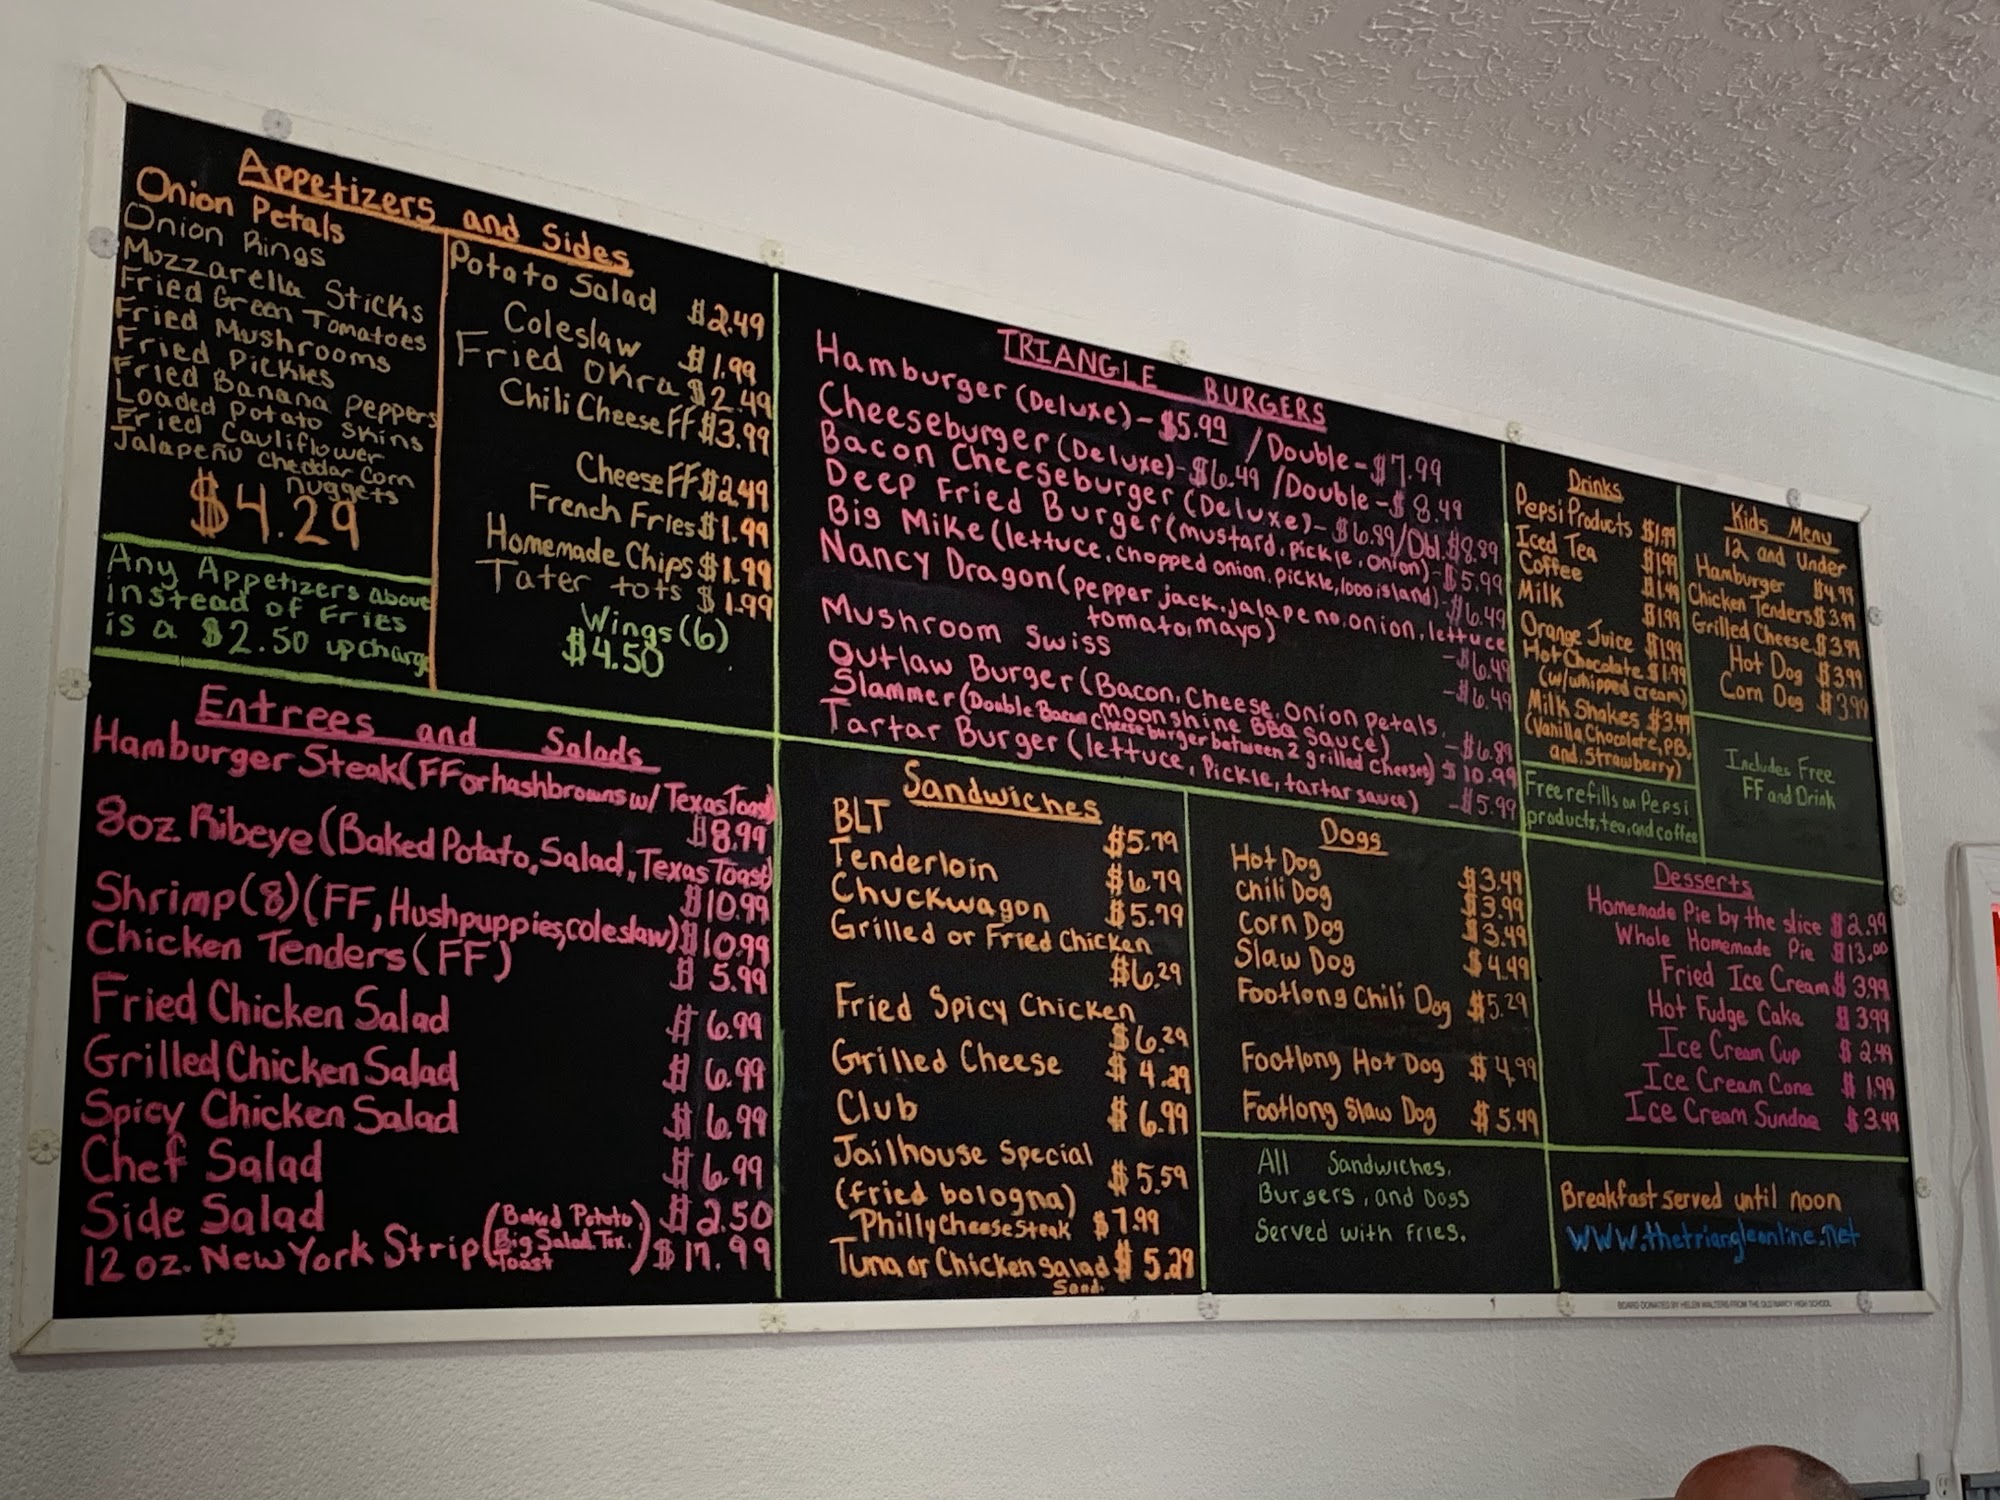 Appetizers and Sides
Onion Petals
Onion Rings
Mozzarella Sticks
Fried Green Tomatoes
Fried Mushrooms
Fried Pickles
Fried Banana Peppers
Loaded Potato Skins
Fried Cauliflower
Jalapeño Cheddar Corn
nuggets
$4.29
Any Appetizers above
instead of Fries
is a $2.50 upcharge
Potato Salad $2.49
Coleslaw $1.99
Fried Okra $2.49
Chili Cheese FF $3.99
Cheese FF $2.49
French Fries $1.99
Homemade Chips $1.99
Tater tots $1.99
Wings (6)
$4.50
Entrees and Salads
Hamburger Steak (FF or hashbrowns w/ Texas Toast)
$8.99
8oz. Ribeye (Baked Potato, Salad, Texas Toast)
$10.99
Shrimp (8) (FF, Hushpuppies, coleslaw) $10.99
Chicken Tenders (FF) $5.99
Fried Chicken Salad $6.99
Grilled Chicken Salad $6.99
Spicy Chicken Salad $6.99
Chef Salad $6.99
Side Salad $2.50
12 oz. New York Strip (Baked Potato, Big Salad, Tex. Toast) $17.99
TRIANGLE BURGERS
Hamburger (Deluxe) - $5.99 / Double - $7.99
Cheeseburger (Deluxe) - $6.49 / Double - $8.49
Bacon Cheeseburger (Deluxe) - $6.89 / Dbl. $8.89
Deep Fried Burger (mustard, pickle, onion) - $5.99
Big Mike (lettuce, chopped onion, pickle, 1000 island) - $6.49
Nancy Dragon (pepper jack, jalapeno, onion, lettuce
tomato, mayo) - $6.49
Mushroom Swiss - $6.49
Outlaw Burger (Bacon, Cheese, Onion Petals,
Moonshine BBQ Sauce) - $6.89
Slammer (Double Bacon cheeseburger between 2 grilled cheeses) $10.99
Tartar Burger (lettuce, Pickle, tartar sauce) - $5.99
Sandwiches
BLT $5.79
Tenderloin $6.79
Chuckwagon $5.79
Grilled or Fried Chicken
$6.29
Fried Spicy Chicken
$6.29
Grilled Cheese $4.29
Club $6.99
Jailhouse Special
(fried bologna) $5.59
Philly cheese steak $7.99
Tuna or Chicken Salad $5.29
Sand.
Dogs
Hot Dog $3.49
Chili Dog $3.99
Corn Dog $3.49
Slaw Dog $4.49
Footlong Chili Dog $5.29
Footlong Hot Dog $4.99
Footlong Slaw Dog $5.49
All Sandwiches,
Burgers, and Dogs
Served with fries.
Drinks
Pepsi Products $1.99
Iced Tea $1.99
Coffee $1.49
Milk $1.99
Orange Juice $1.99
Hot Chocolate $1.99
(w/whipped cream)
Milk Shakes $3.99
(Vanilla, Chocolate, PB,
and, Strawberry)
Free refills on Pepsi
products, tea, and coffee
Kids Menu
12 and Under
Hamburger $4.99
Chicken Tenders $3.99
Grilled Cheese $3.99
Hot Dog $3.99
Corn Dog $3.99
Includes Free
FF and Drink
Desserts
Homemade Pie by the slice $2.99
Whole Homemade Pie $13.00
Fried Ice Cream $3.99
Hot Fudge Cake $3.99
Ice Cream Cup $2.49
Ice Cream Cone $1.99
Ice Cream Sundae $3.49
Breakfast served until noon
www.thetriangleonline.net
BOARD DONATED BY HELEN WALTERS FROM THE OLD NANCY HIGH SCHOOL